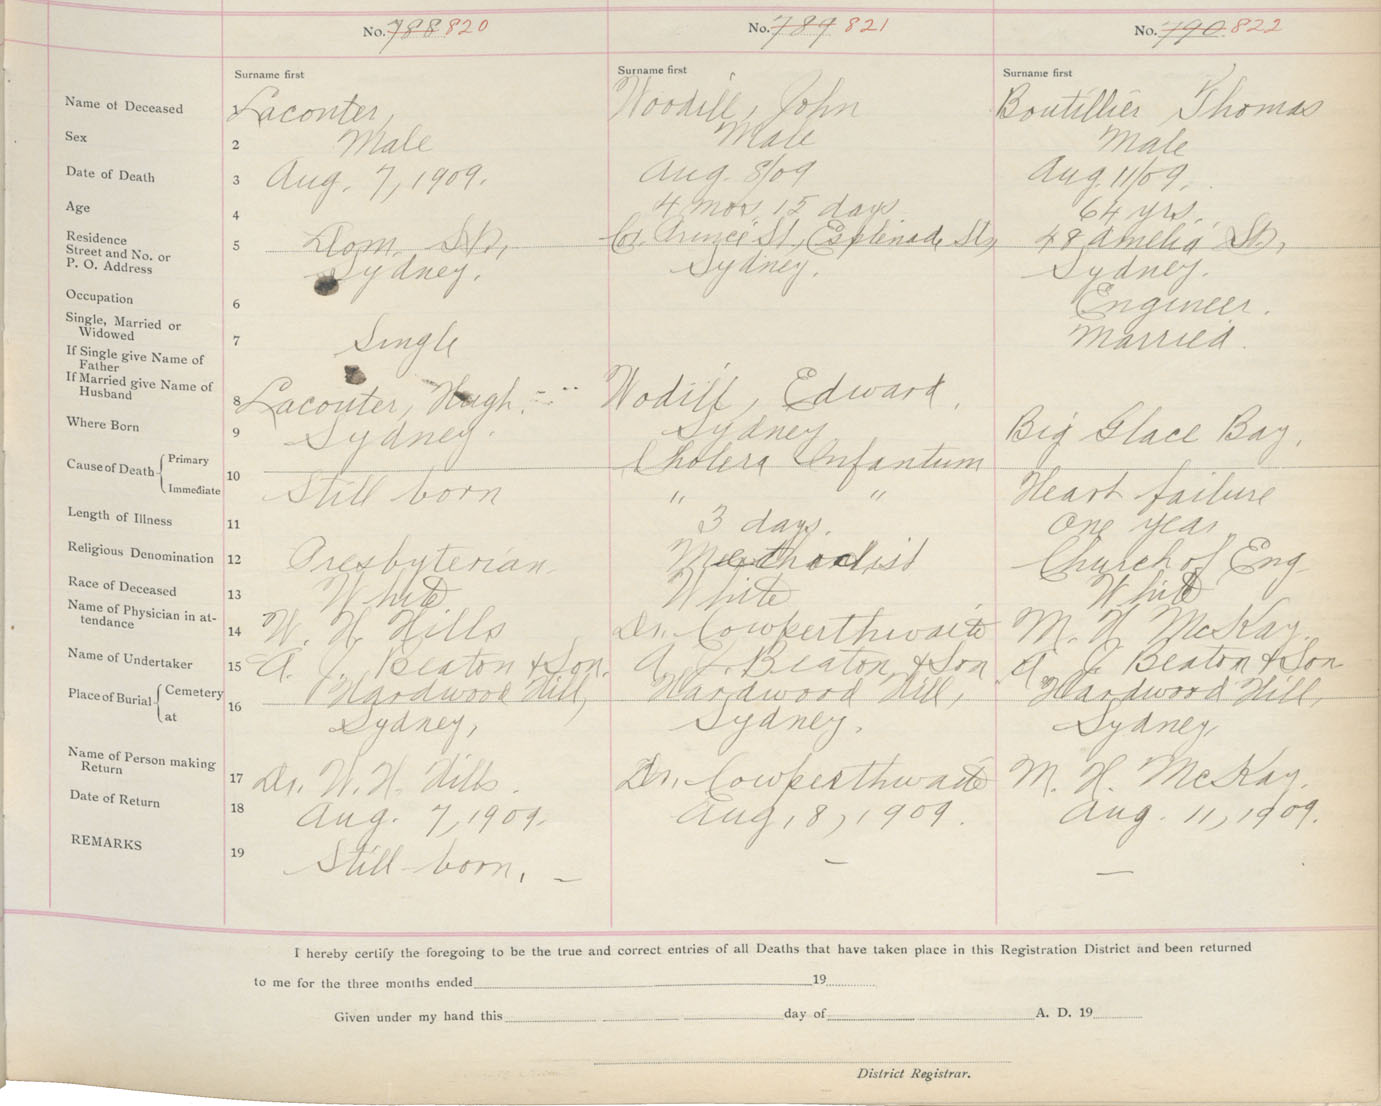 No. 788 820
No. 789 821
No. 790 822
Surname first
Surname first
Surname first
Name of Deceased 1 Laconter, Woodill, John Boutillier Thomas
Sex 2 Male Male Male
Date of Death 3 Aug. 7, 1909. Aug. 8/09 Aug. 11/09.
Age 4 4 mos 15 days 64 yrs.
Residence
Street and No. or
P. O. Address
5 Dom. St., Cor. Prince St, Esplenade St, 48 Amelia St,
Sydney. Sydney. Sydney.
Occupation 6 Engineer.
Single, Married or
Widowed
7 Single Married.
If Single give Name of
Father
If Married give Name of
Husband
8 Laconter, Hugh. Wodill, Edward.
Where Born 9 Sydney. Sydney Big Glace Bay.
Cause of Death Primary Cholera Infantum
Immediate 10 Still born " " Heart failure
Length of Illness 11 3 days. One year
Religious Denomination 12 Presbyterian Methodist Church of Eng
Race of Deceased 13 White White White
Name of Physician in at-
tendance
14 W. H. Hills Dr. Cowperthwaite M. H. McKay.
Name of Undertaker 15 A. J. Beaton & Son. A. J. Beaton & Son A. J. Beaton & Son
Place of Burial Cemetery Hardwood Hill, Hardwood Hill, Hardwood Hill,
at 16 Sydney, Sydney. Sydney,
Name of Person making
Return
17 Dr. W. H. Hills. Dr. Cowperthwaite M. H. McKay.
Date of Return 18 Aug. 7, 1909. Aug, 8, 1909. Aug. 11, 1909.
REMARKS 19 Still-born. — — —
I hereby certify the foregoing to be the true and correct entries of all Deaths that have taken place in this Registration District and been returned
to me for the three months ended 19
Given under my hand this day of A. D. 19
District Registrar.